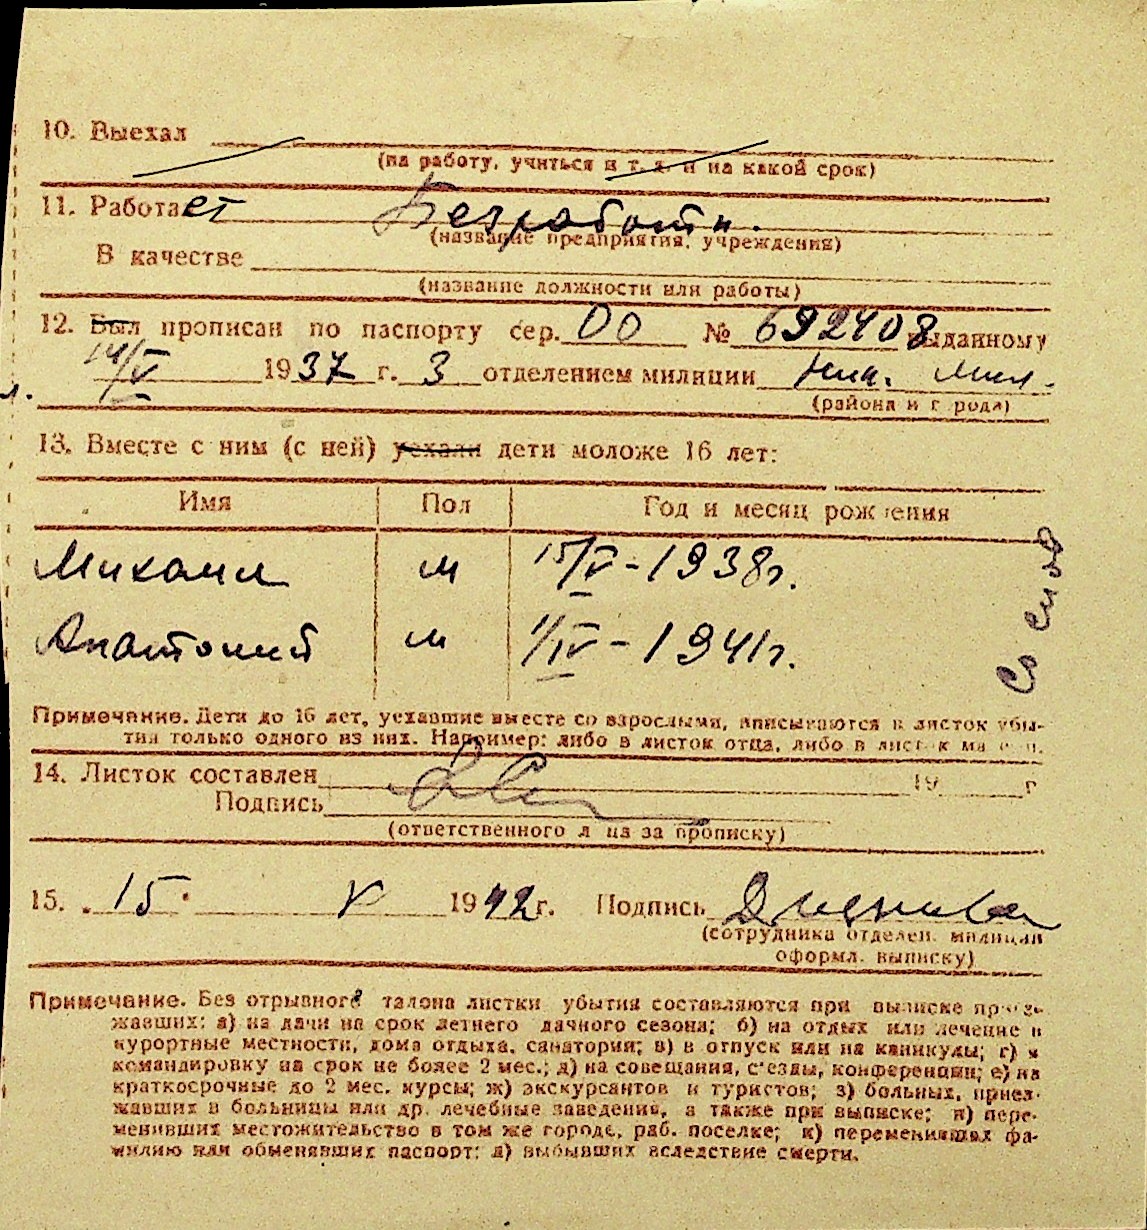 10. Выехал
(на работу, учиться и т. д. и на какой срок)
11. Работает Безработн.
(название предприятия, учреждения)
В качестве
(название должности или работы)
12. Был прописан по паспорту сер. ОО № 692408 выданному
14/V 1937 г. 3 отделением милиции Ник. Мил.
(района и города)
13. Вместе с ним (с ней) уехали дети моложе 16 лет:
Имя Пол Год и месяц рождения
Михаил м 15/V-1938г.
Анатолий м 1/IV-1941г.
Примечание. Дети до 16 лет, уехавшие вместе со взрослыми, вписываются в листок убы-
тия только одного из них. Например: либо в листок отца, либо в листок матери.
14. Листок составлен 19 г
Подпись
(ответственного лица за прописку)
15. 15. V 1942г. Подпись
(сотрудника отделен. милиции
оформл. выписку)
Примечание. Без отрывного талона листки убытия составляются при выписке приез-
жавших: а) на дачи на срок летнего дачного сезона; б) на отдых или лечение в
курортные местности, дома отдыха, санатории; в) в отпуск или на каникулы; г) в
командировку на срок не более 2 мес.; д) на совещания, съезды, конференции; е) на
краткосрочные до 2 мес. курсы; ж) экскурсантов и туристов; з) больных, приез-
жавших в больницы или др. лечебные заведения, а также при выписке; и) пере-
менивших местожительство в том же городе, раб. поселке; к) переменивших фа-
милию или обменявших паспорт; л) выбывших вследствие смерти.